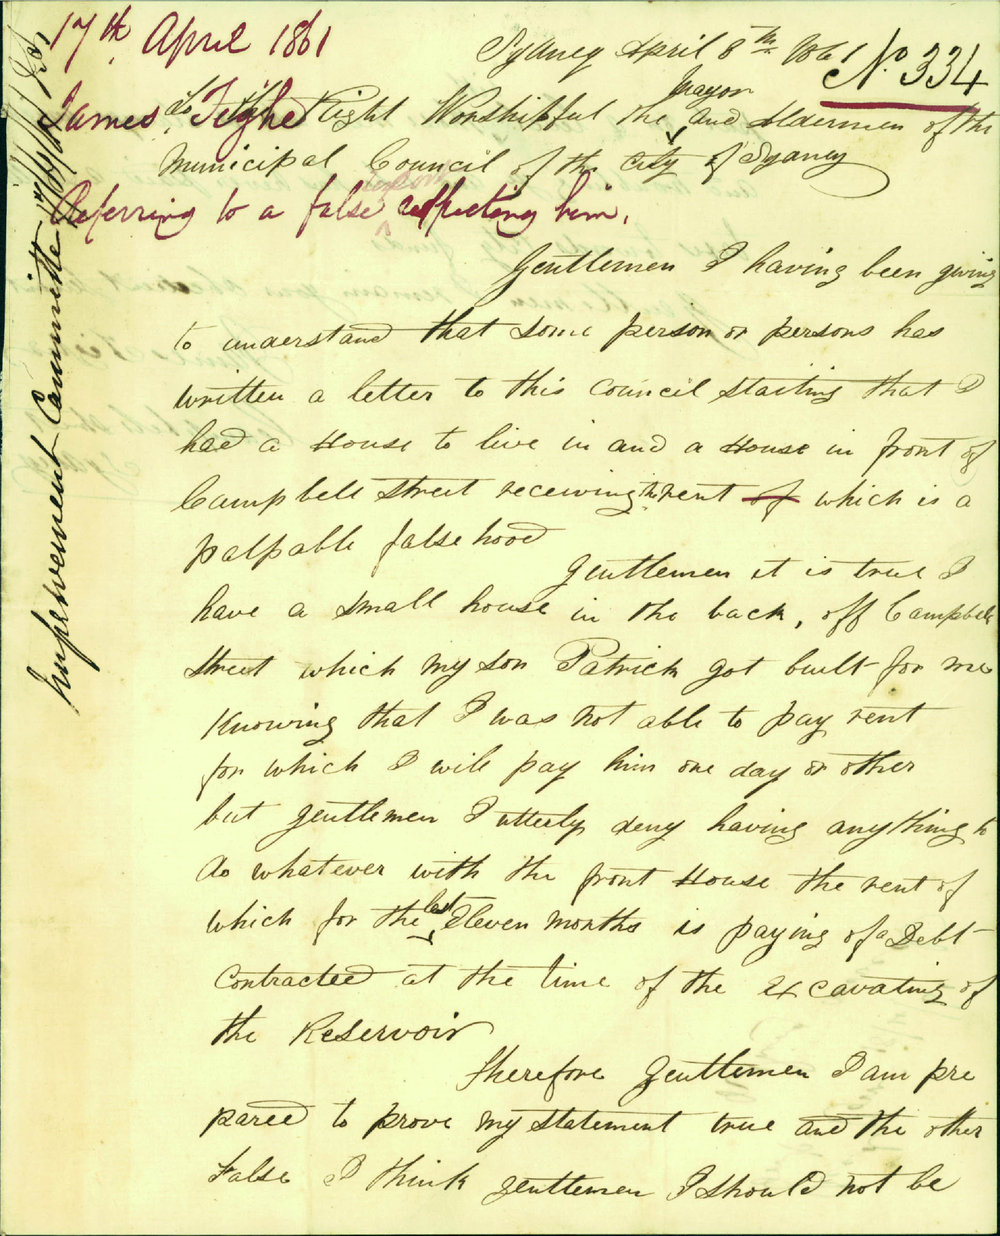 17th April 1861
Sydney April 8th 1861
No. 334
James Tighe
To the Right Worshipful the Mayor and Aldermen of the
Municipal Council of the City of Sydney
Referring to a false report affecting him.
Gentlemen I having been giving
to understand that some person or persons has
written a letter to this Council stating that I
had a House to live in and a House in front of
Campbell Street receiving the rent of which is a
palpable falsehood
Gentlemen it is true I
have a small house in the back, off Campbell
Street which my son Patrick got built for me
Knowing that I was not able to pay rent
for which I will pay him one day or other
but gentlemen I utterly deny having anything to
do whatever with the front House the rent of
which for the last Eleven Months is paying of a Debt
Contracted at the time of the excavating of
the Reservoir
Therefore Gentlemen I am pre
pared to prove my statement true and the other
False I think gentlemen I should not be
Improvement Committee